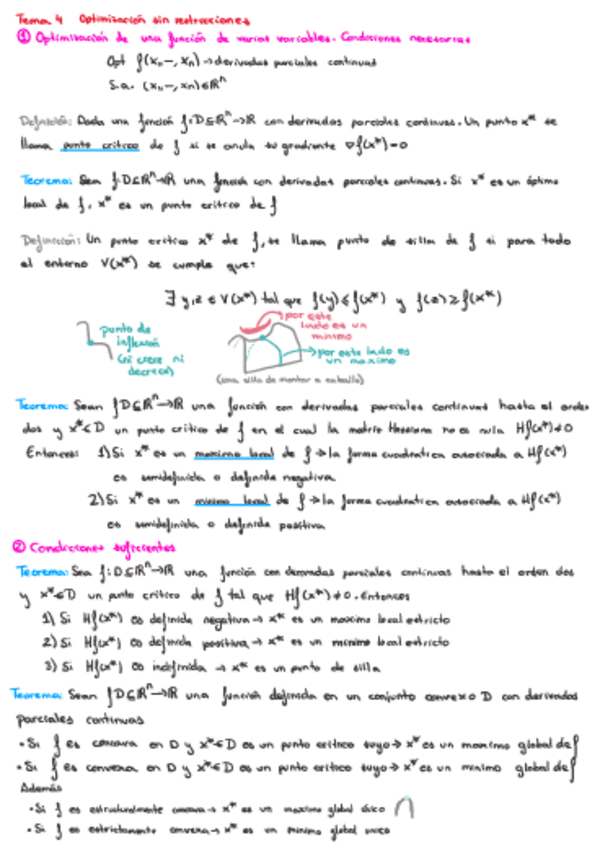 Tema 4 Optimización sin restricciones
① Optimización de una función de varias variables. Condiciones necesarias
Opt f(x₁,—, xn) → derivadas parciales continuas
S.a. (x₁,—, xn) ∈ ℝⁿ
Definición: Dada una función f: D ⊆ ℝⁿ → ℝ con derivadas parciales continuas. Un punto x* se
llama punto crítico de f si se anula su gradiente ∇f(x*) = 0
Teorema: Sea f: D ⊆ ℝⁿ → ℝ una función con derivadas parciales continuas. Si x* es un óptimo
local de f, x* es un punto crítico de f
Definición: Un punto crítico x* de f, se llama punto de silla de f si para todo
el entorno V(x*) se cumple que:
∃ y, z ∈ V(x*) tal que f(y) ≤ f(x*) y f(z) ≥ f(x*)
punto de
inflexión
(ni crece ni
decrece)
por este
lado es un
mínimo
por este lado es
un maximo
(una silla de montar a caballo)
Teorema: Sean f D ⊆ ℝⁿ → ℝ una función con derivadas parciales continuas hasta el orden
dos y x* ∈ D un punto crítico de f en el cual la matriz Hessiana no es nula Hf(x*) ≠ 0
Entonces: 1) Si x* es un maximo local de f → la forma cuadratica asociada a Hf(x*)
es semidefinida o definida negativa
2) Si x* es un minimo local de f → la forma cuadratica asociada a Hf(x*)
es semidefinida o definida positiva
② Condiciones suficientes
Teorema: Sea f: D ⊆ ℝⁿ → ℝ una función con derivadas parciales continuas hasta el orden dos
y x* ∈ D un punto crítico de f tal que Hf(x*) ≠ 0. Entonces
1) Si Hf(x*) es definida negativa → x* es un maximo local estricto
2) Si Hf(x*) es definida positiva → x* es un minimo local estricto
3) Si Hf(x*) es indefinida → x* es un punto de silla
Teorema: Sean f D ⊆ ℝⁿ → ℝ una función definida en un conjunto convexo D con derivadas
parciales continuas
• Si f es concava en D y x* ∈ D es un punto crítico suyo → x* es un maximo global de f
• Si f es convexa en D y x* ∈ D es un punto crítico suyo → x* es un minimo global de f
Además
• Si f es concava → x* es un maximo global único
• Si f es estrictamente convexa → x* es un minimo global unico